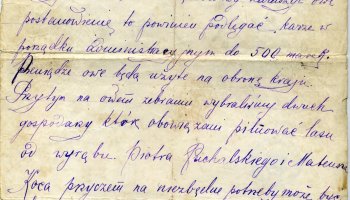 postanowienie to powinien podlegać karze w
porządku administracyjnym do 500 marek.
Pieniądze owe będą użyte na obronę kraju.
Przytym na owem zebraniu wybraliśmy dwuch
gospodarzy ktok obowiązani pilnować lasu
od wyrąbu. Piotra i Mateusza
Koca przyczem na niezbędne potrzeby może być